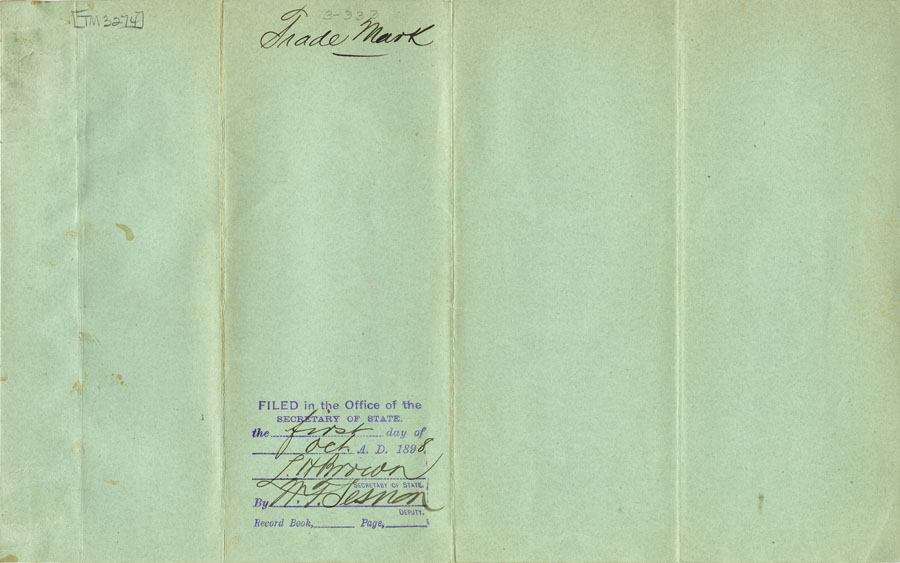 [TM3274]
3-333
Trade Mark
FILED in the Office of the
SECRETARY OF STATE.
the first day of
Oct. A. D. 1898.
L. H Brown
SECRETARY OF STATE.
By W. T. Sesnon
DEPUTY.
Record Book, Page,